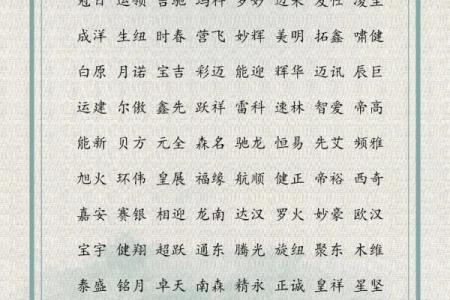 成洋 生纽 时春 营飞 妙辉 美明 拓鑫 啸健
白原 月诺 宝吉 彩迈 能迎 辉华 迈讯 辰巨
运建 尔傲 鑫先 跃祥 雷科 速林 智爱 帝高
能新 贝方 元全 森名 驰龙 恒易 先艾 频雅
旭火 环伟 皇展 福缘 航顺 健正 帝裕 西奇
嘉安 赛银 相迎 龙南 达汉 罗火 妙豪 欧汉
宝宇 健翔 超跃 通东 腾光 旋纽 聚东 木维
泰盛 铭月 卓天 南森 精永 正诚 皇祥 星坚